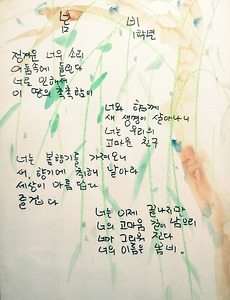 봄 비
1학년
정겨운 너의 소리
어둠속에 들린다
너로 인해서
이 땅의 촉촉함이
너와 함께
새 생명이 살아나니
너는 우리의
고마운 친구
너는 봄향기를 가져오니
새, 향기에 취해 날아라
세상이 아름답다
즐겁다
너는 이제 끝나지만
너의 고마움 길이 남으리
너가 그리워 진다
너의 이름은 봄비.